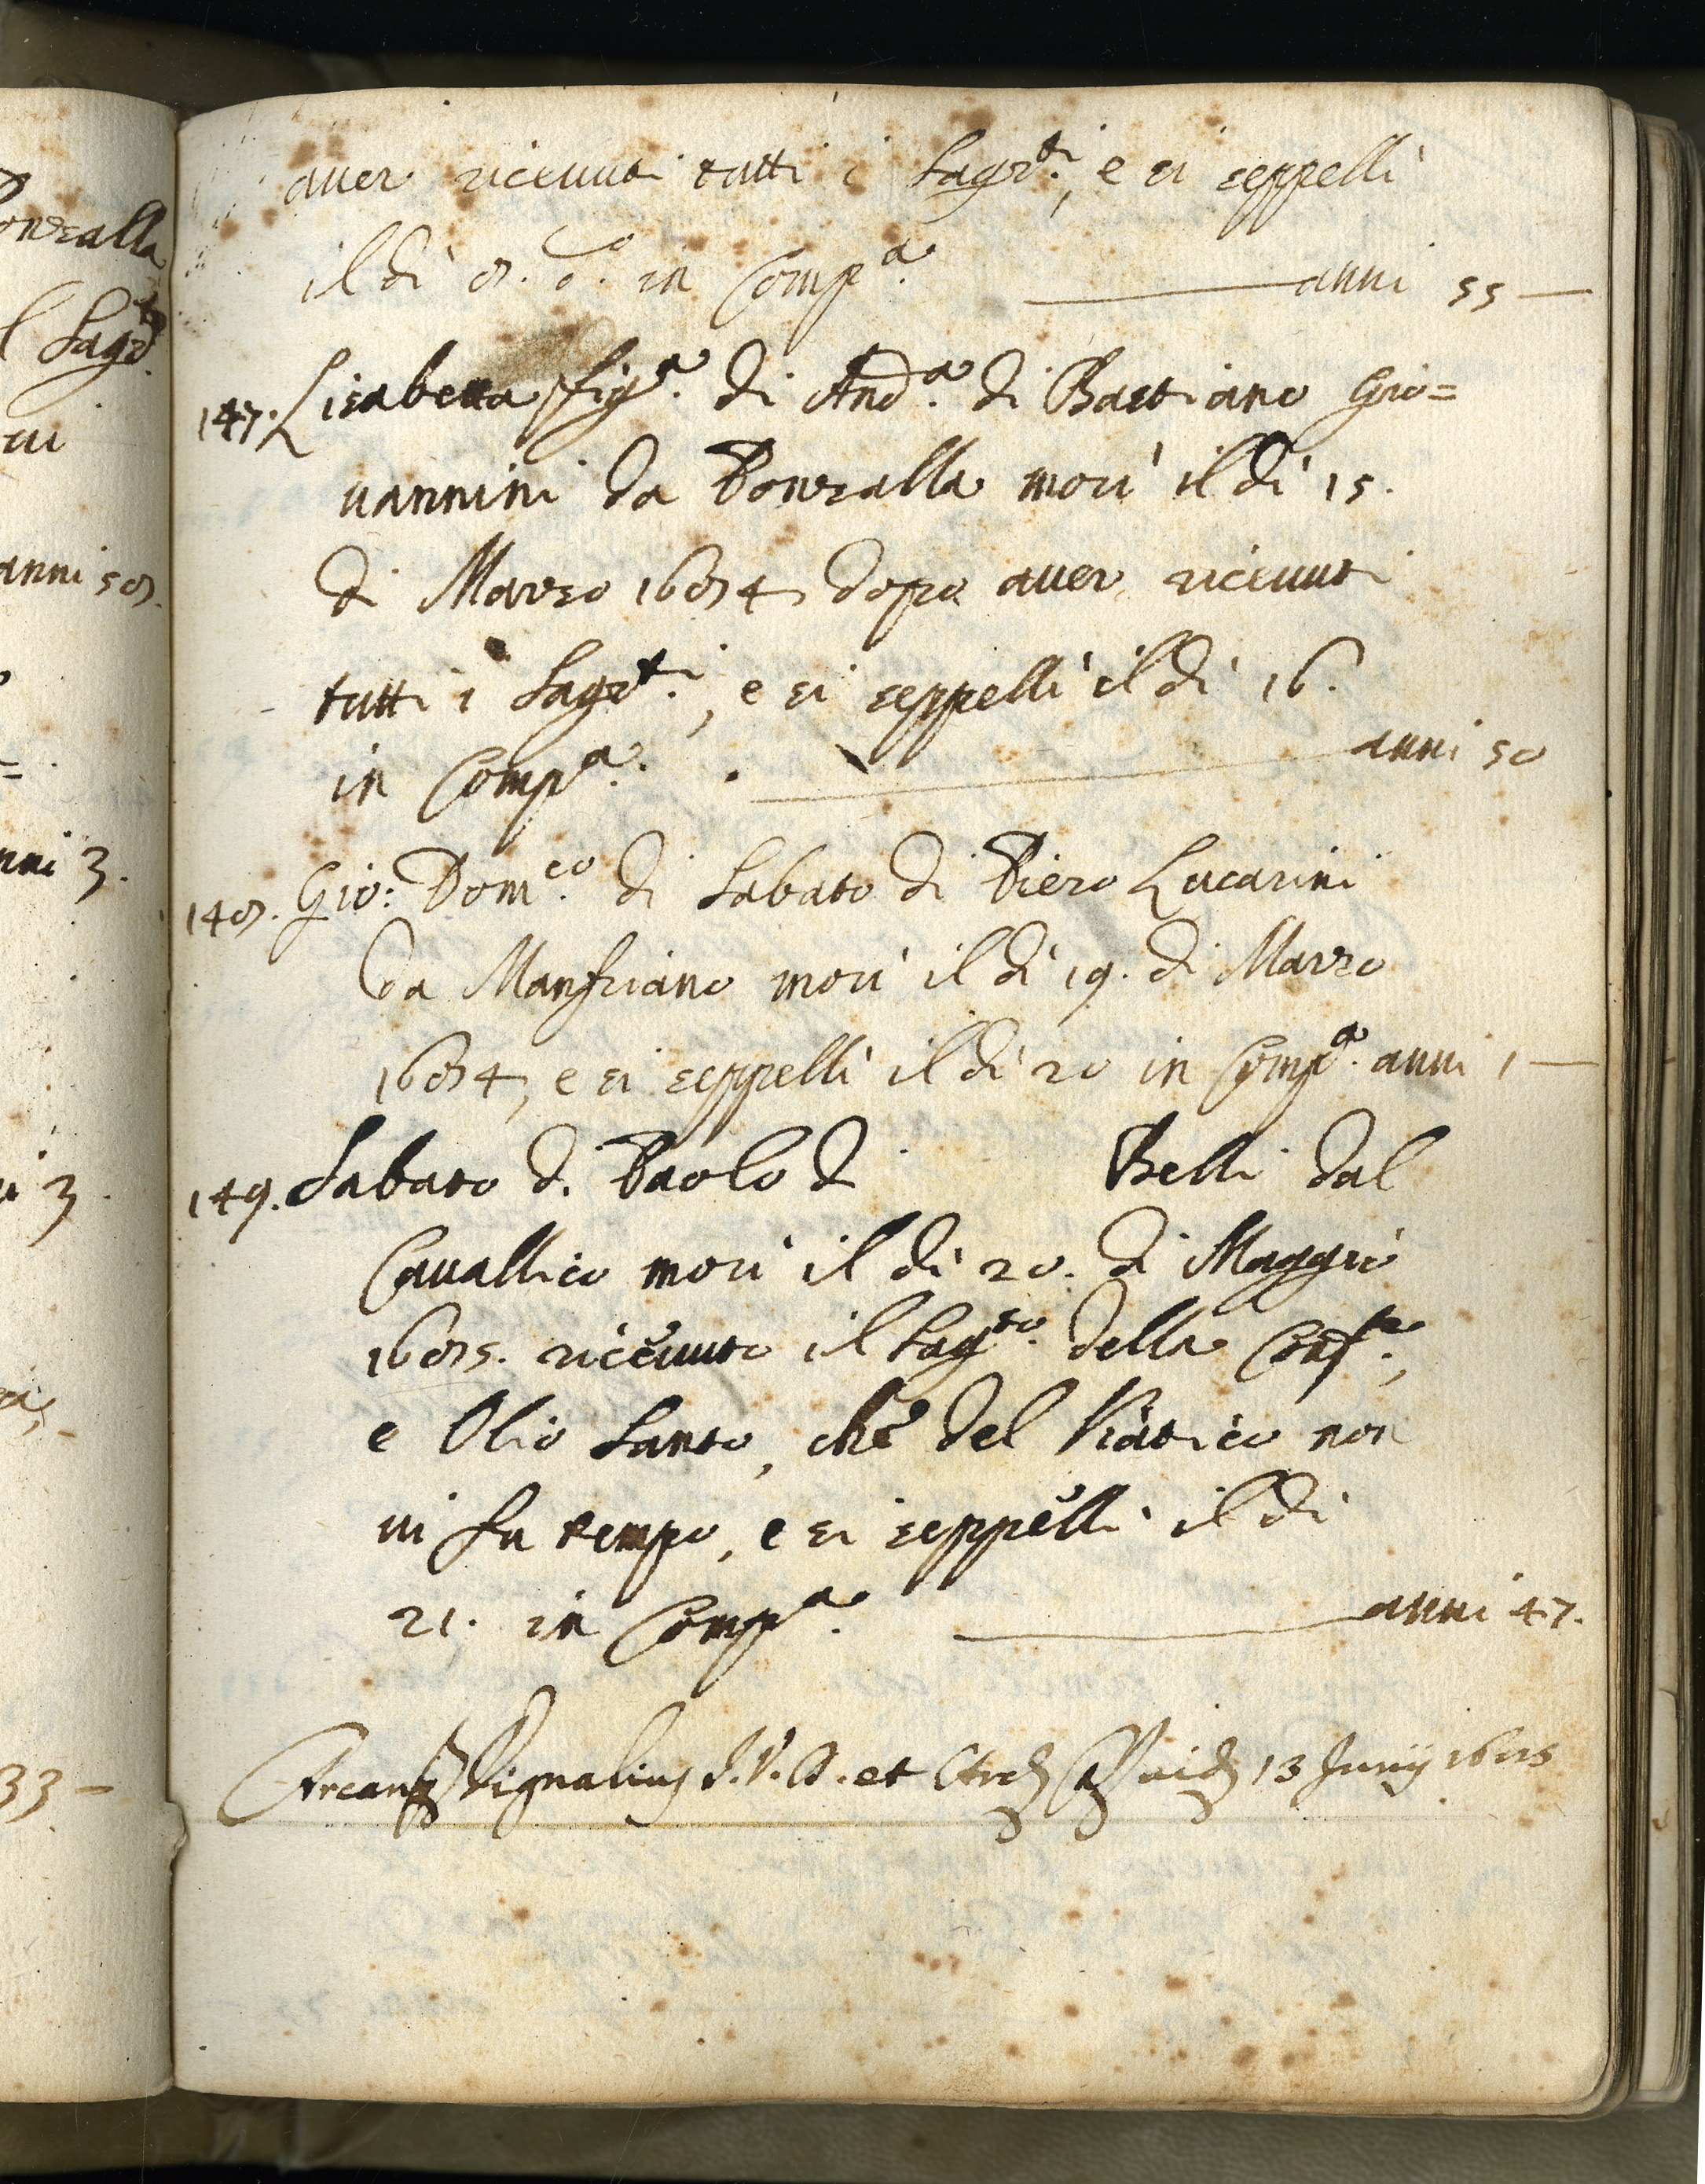 auer riceuuti tutti i Sagr.ti, e si seppellì
il dì 8. d.o in Comp.a anni 55
147. Lisabetta fig.a di And.a di Bastiano Gio=
uannini da Ponzalla morì il dì 15.
di Marzo 1684 dopo auer riceuuti
tutti i Sagr.ti, e si seppellì il dì 16.
in Comp.a. anni 50
148. Gio: Dom.co di Sabato di Piero Lucarini
da Manfriano morì il dì 19. di Marzo
1684, e si seppellì il dì 20 in Comp.a anni 1
149. Sabato di Paolo di Belli dal
Cauallico morì il dì 20. di Maggio
1685. riceuuto il Sag.to della Conf.e,
e Olio Santo, che del Viatico non
ui fu tempo, e si seppellì il dì
21. in Comp.a anni 47.
Vignalius J.V.D. et 13 Junij 1685
onzalla
l Sagr.to
ui
anni 58.
nni 3.
i 3.
a,
33